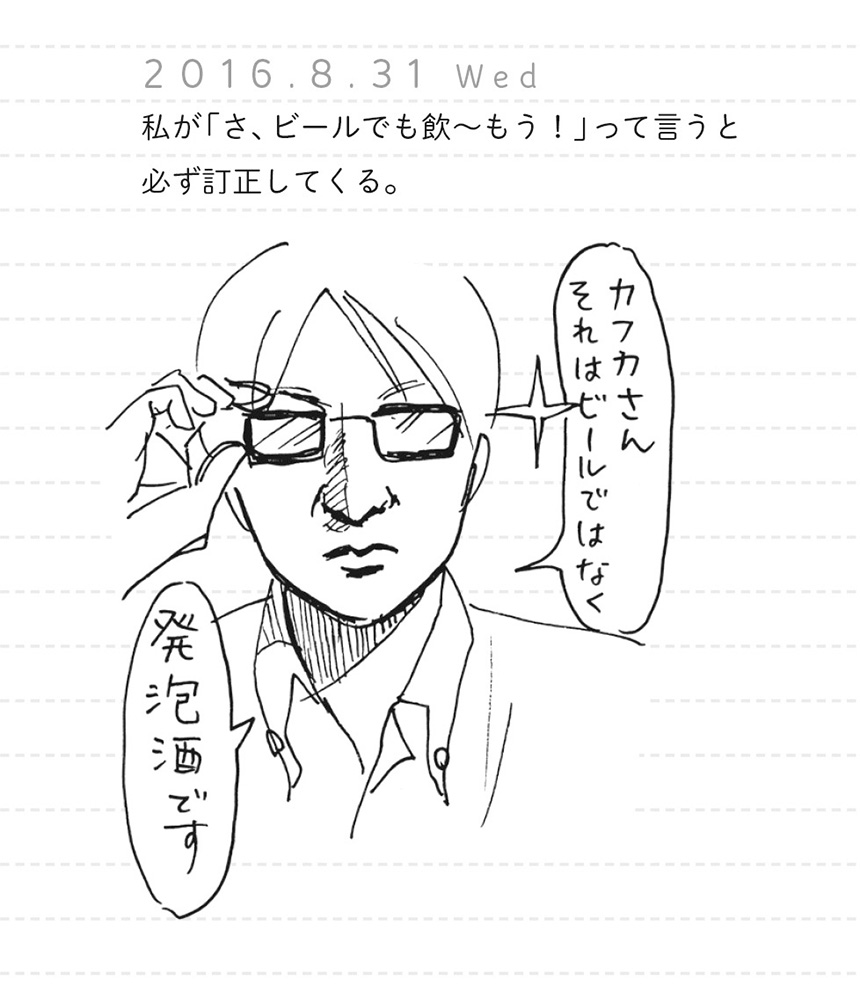 2016.8.31 Wed
私が「さ、ビールでも飲〜もう！」って言うと
必ず訂正してくる。
カフカさん
それはビールではなく
発泡酒です